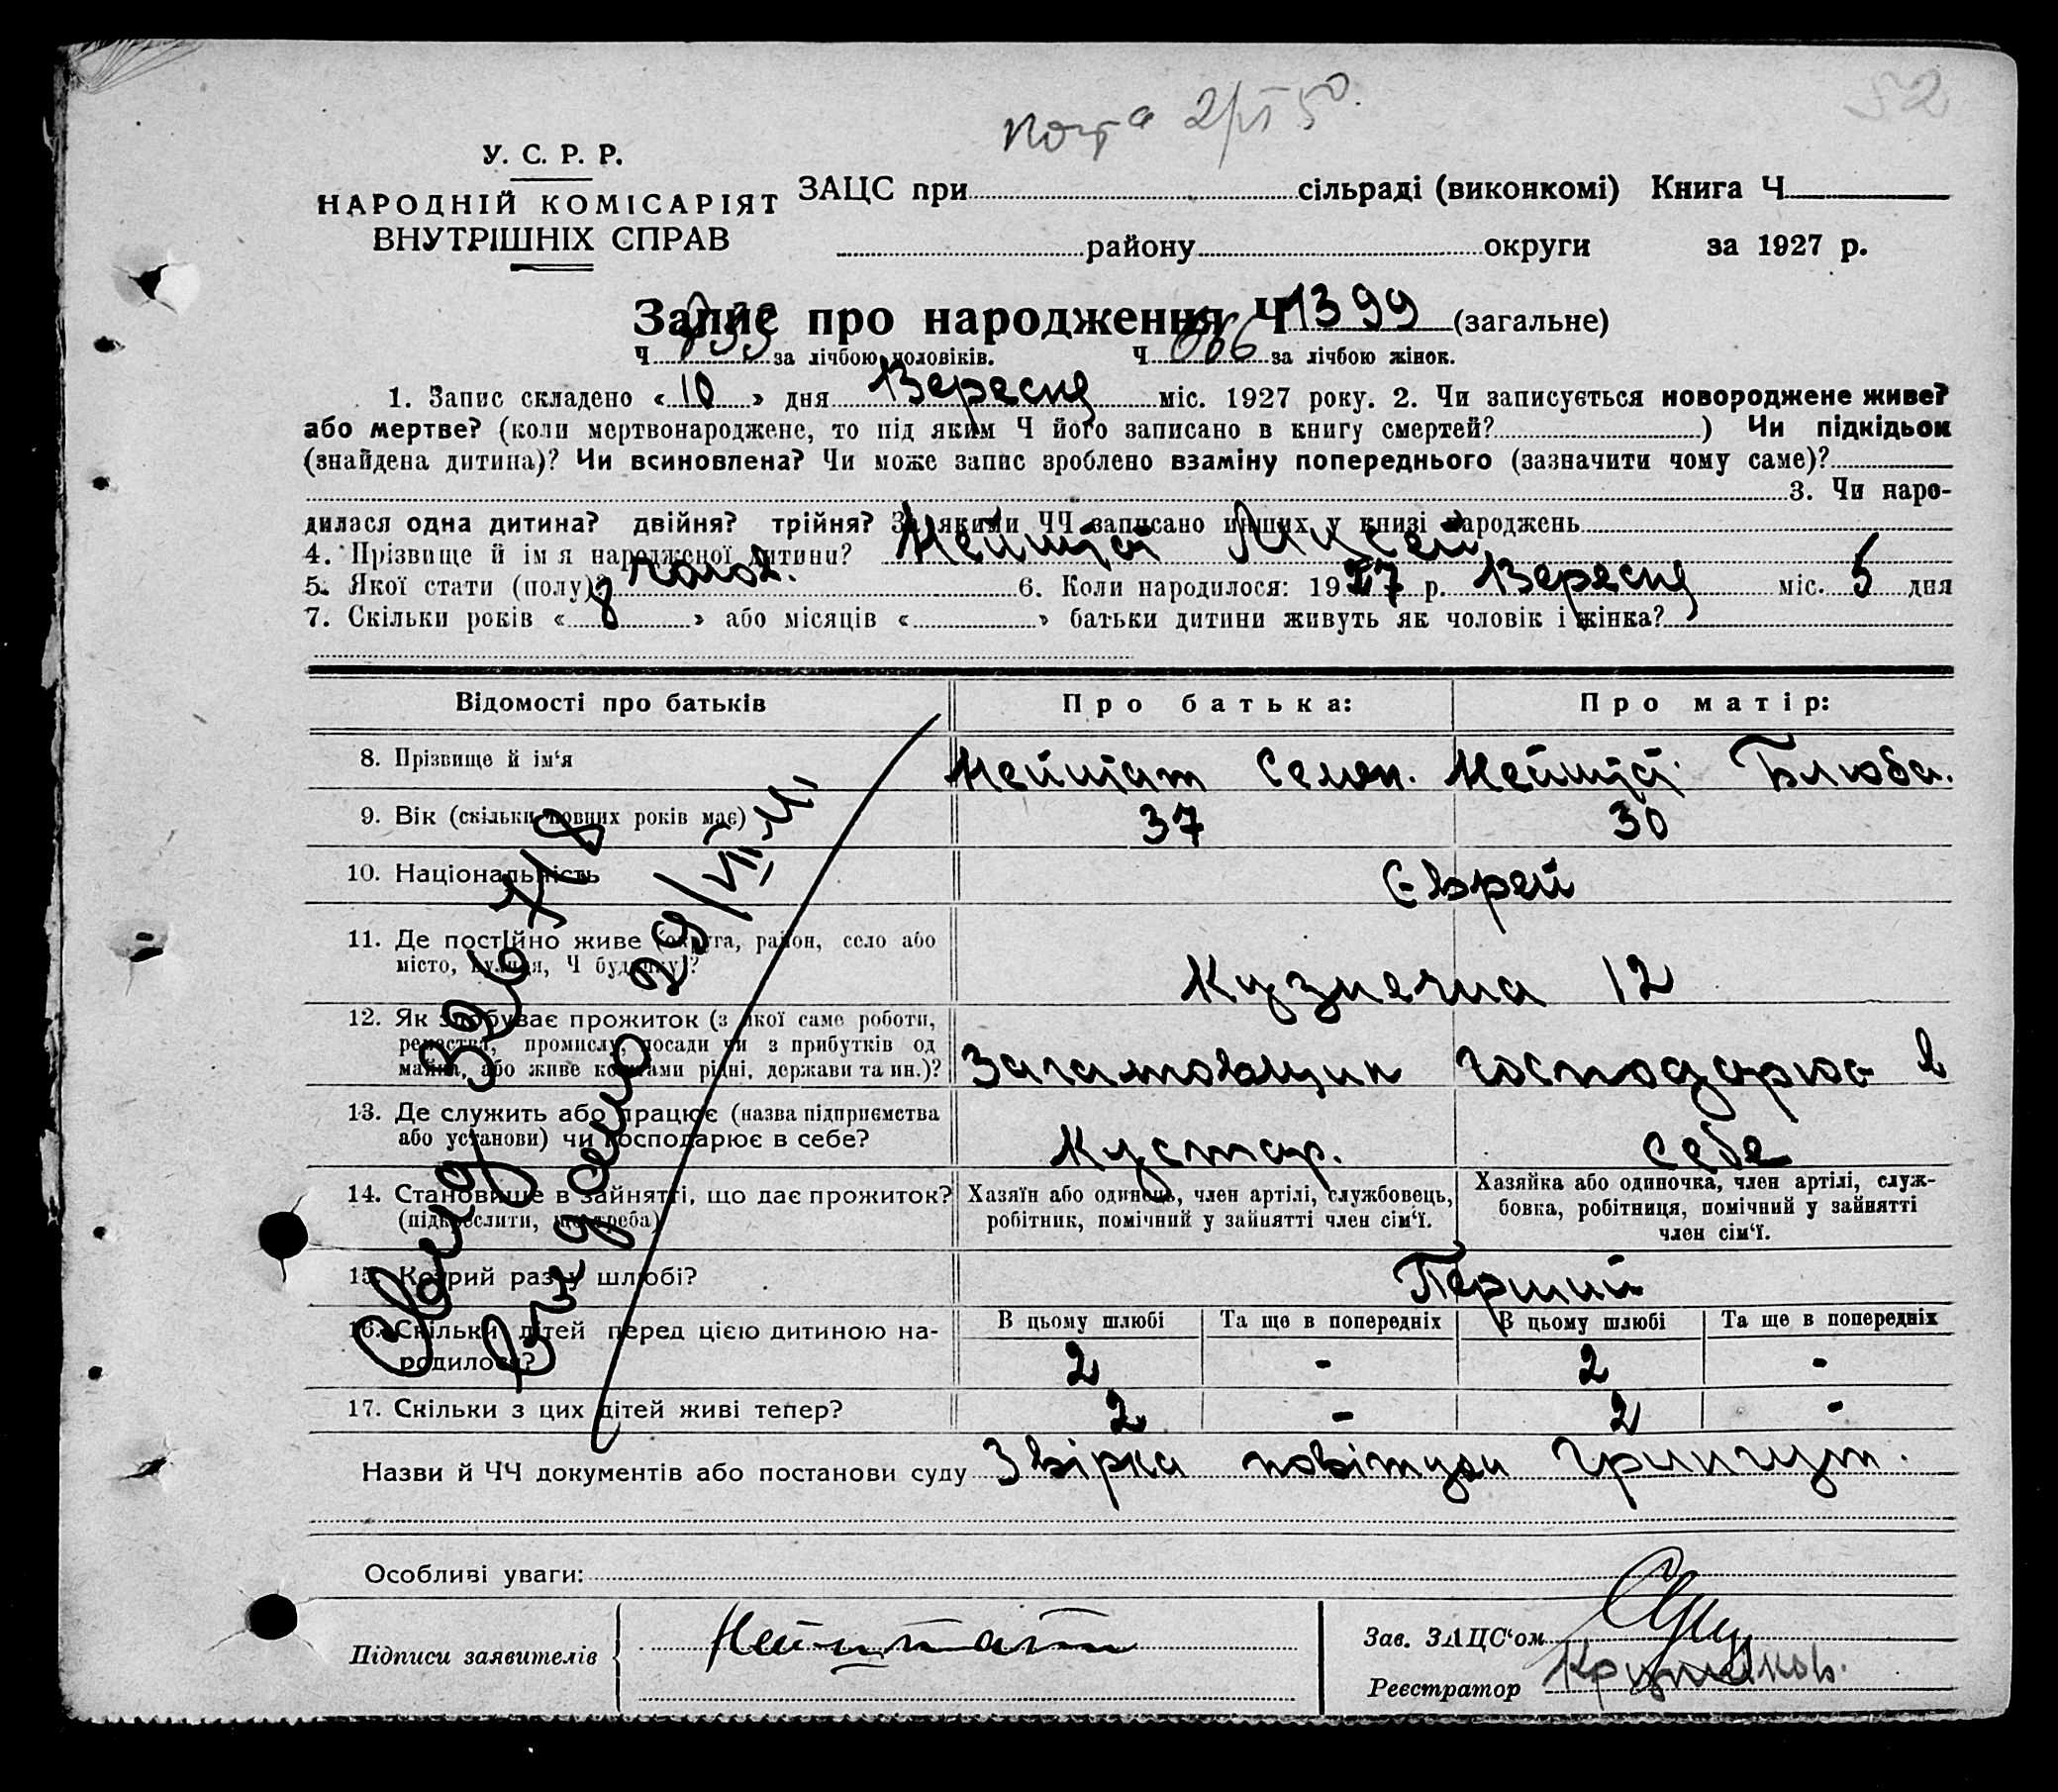 52
почта 2/VI 50.
У. С. Р. Р.
НАРОДНІЙ КОМІСАРІЯТ
ВНУТРІШНІХ СПРАВ
ЗАЦС при сільраді (виконкомі) Книга Ч
району округи за 1927 р.
Запис про народження Ч 1399 (загальне)
Ч 733 за лічбою чоловіків. Ч 666 за лічбою жінок.
1. Запис складено « 10 » дня Вересня міс. 1927 року. 2. Чи записується новороджене живе?
або мертве? (коли мертвонароджене, то під яким Ч його записано в книгу смертей? ) Чи підкідьок
(знайдена дитина)? Чи всиновлена? Чи може запис зроблено взаміну попереднього (зазначити чому саме)?
3. Чи наро-
дилася одна дитина? двійня? трійня? За якими ЧЧ записано инших у книзі народжень
4. Прізвище й ім я народженої дитини? Нейштат
5. Якої стати (полу)? чолов. 6. Коли народилося: 1927 р. Вересня міс. 5 дня
7. Скільки років « 8 » або місяців « » батьки дитини живуть як чоловік і жінка?
Відомості про батьків Про батька: Про матір:
8. Прізвище й ім‘я Нейштат Семен. Нейштат Блюба.
9. Вік (скільки повних років має) 37 30
10. Національність Єврей
11. Де постійно живе (округа, район, село або
місто, вулиця, Ч будинку)? Кузнечна 12
12. Як здобуває прожиток (з якої саме роботи,
ремества, промислу, посади чи з прибутків од
майна, або живе коштами рідні, держави та ин.)? Заготовщик господарює в
13. Де служить або працює (назва підприємства
або установи) чи господарює в себе? Кустар. себе
14. Становище в занятті, що дає прожиток?
(підкреслити, що треба)
Хазяїн або одинець, член артілі, службовець,
робітник, помічний у зайнятті член сім‘ї.
Хазяйка або одиночка, член артілі, служ-
бовка, робітниця, помічний у зайнятті
член сім‘ї.
15. Котрий раз у шлюбі? Перший
16. Скільки дітей перед цією дитиною на-
родилося?
В цьому шлюбі Та ще в попередніх В цьому шлюбі Та ще в попередніх
2 - 2 -
17. Скільки з цих дітей живі тепер? 2 - 2 -
Назви й ЧЧ документів або постанови суду Звірка повітухи
Особливі уваги:
Підписи заявителів Нейштатъ
Зав. ЗАЦС‘ом
Реєстратор
29/VII